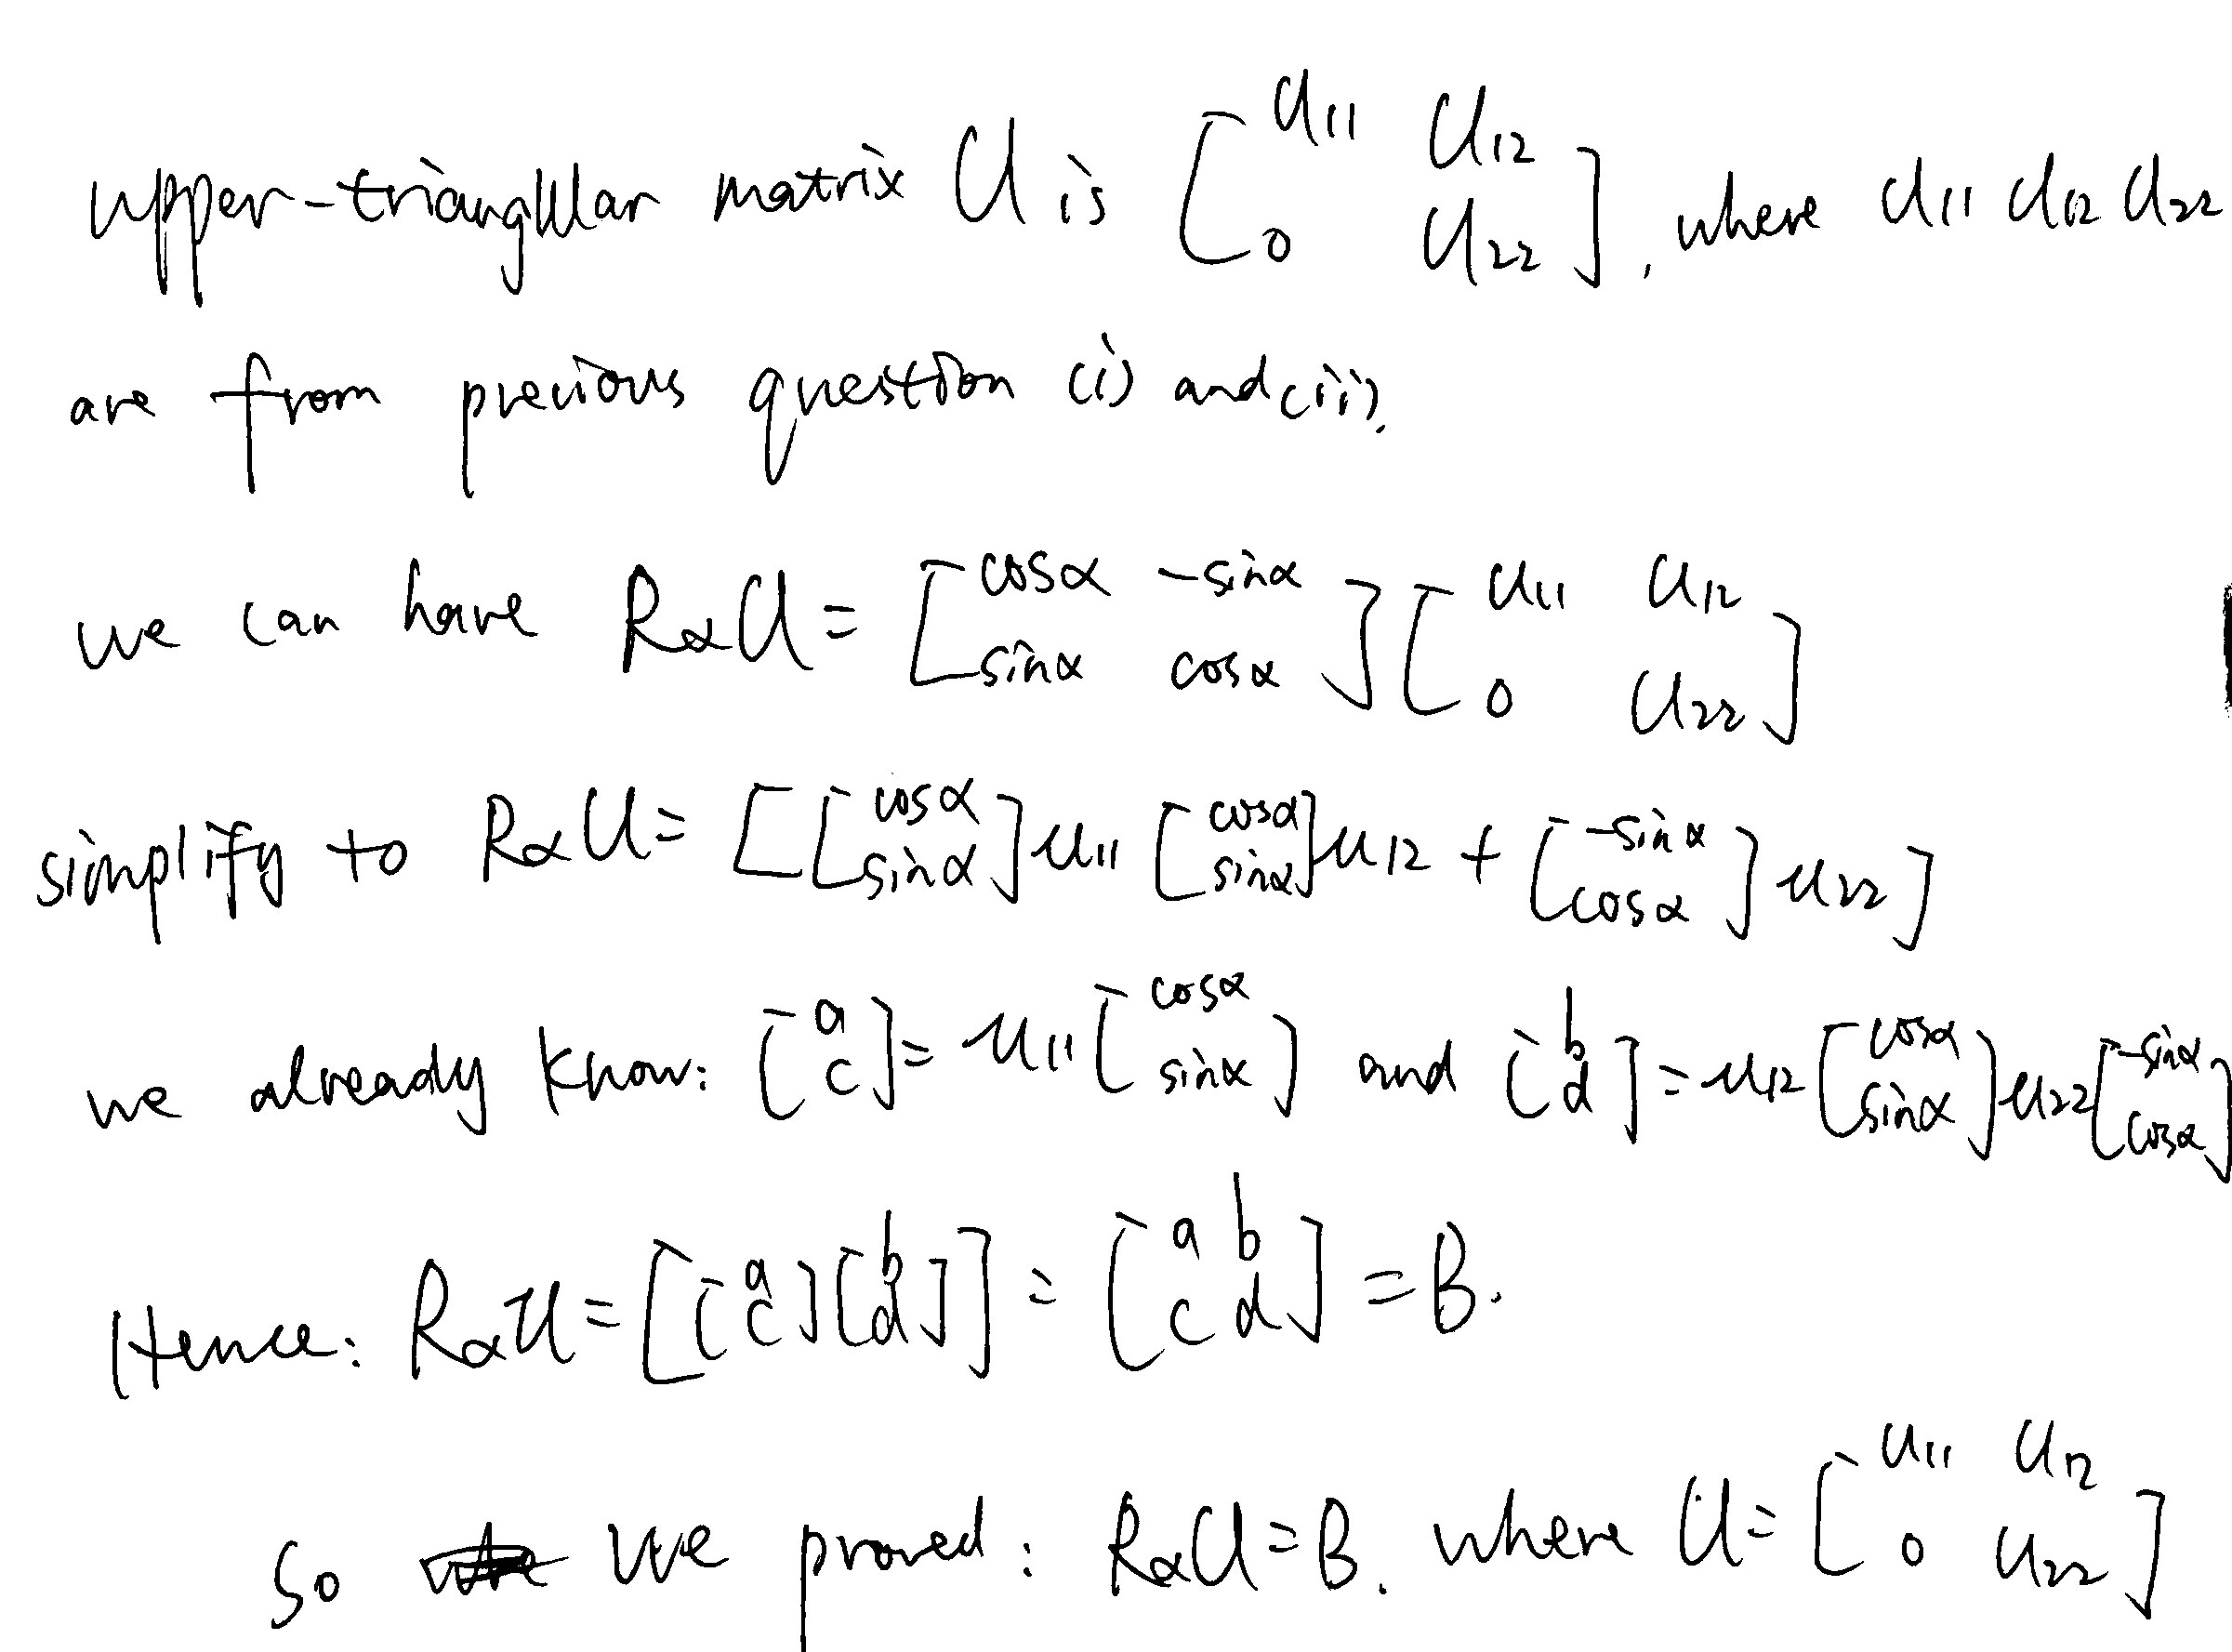 upper-triangular matrix U is [u11 u12; 0 u22], where u11 u12 u22
are from previous question (i) and (ii).
we can have RαU = [cosα -sinα; sinα cosα][u11 u12; 0 u22]
simplify to RαU = [[cosα; sinα]u11 [cosα; sinα]u12 + [-sinα; cosα]u22]
we already know: [a; c] = u11[cosα; sinα] and [b; d] = u12[cosα; sinα]u22[-sinα; cosα]
Hence: RαU = [[a; c][b; d]] = [a b; c d] = B.
So we proved: RαU = B. where U = [u11 u12; 0 u22]